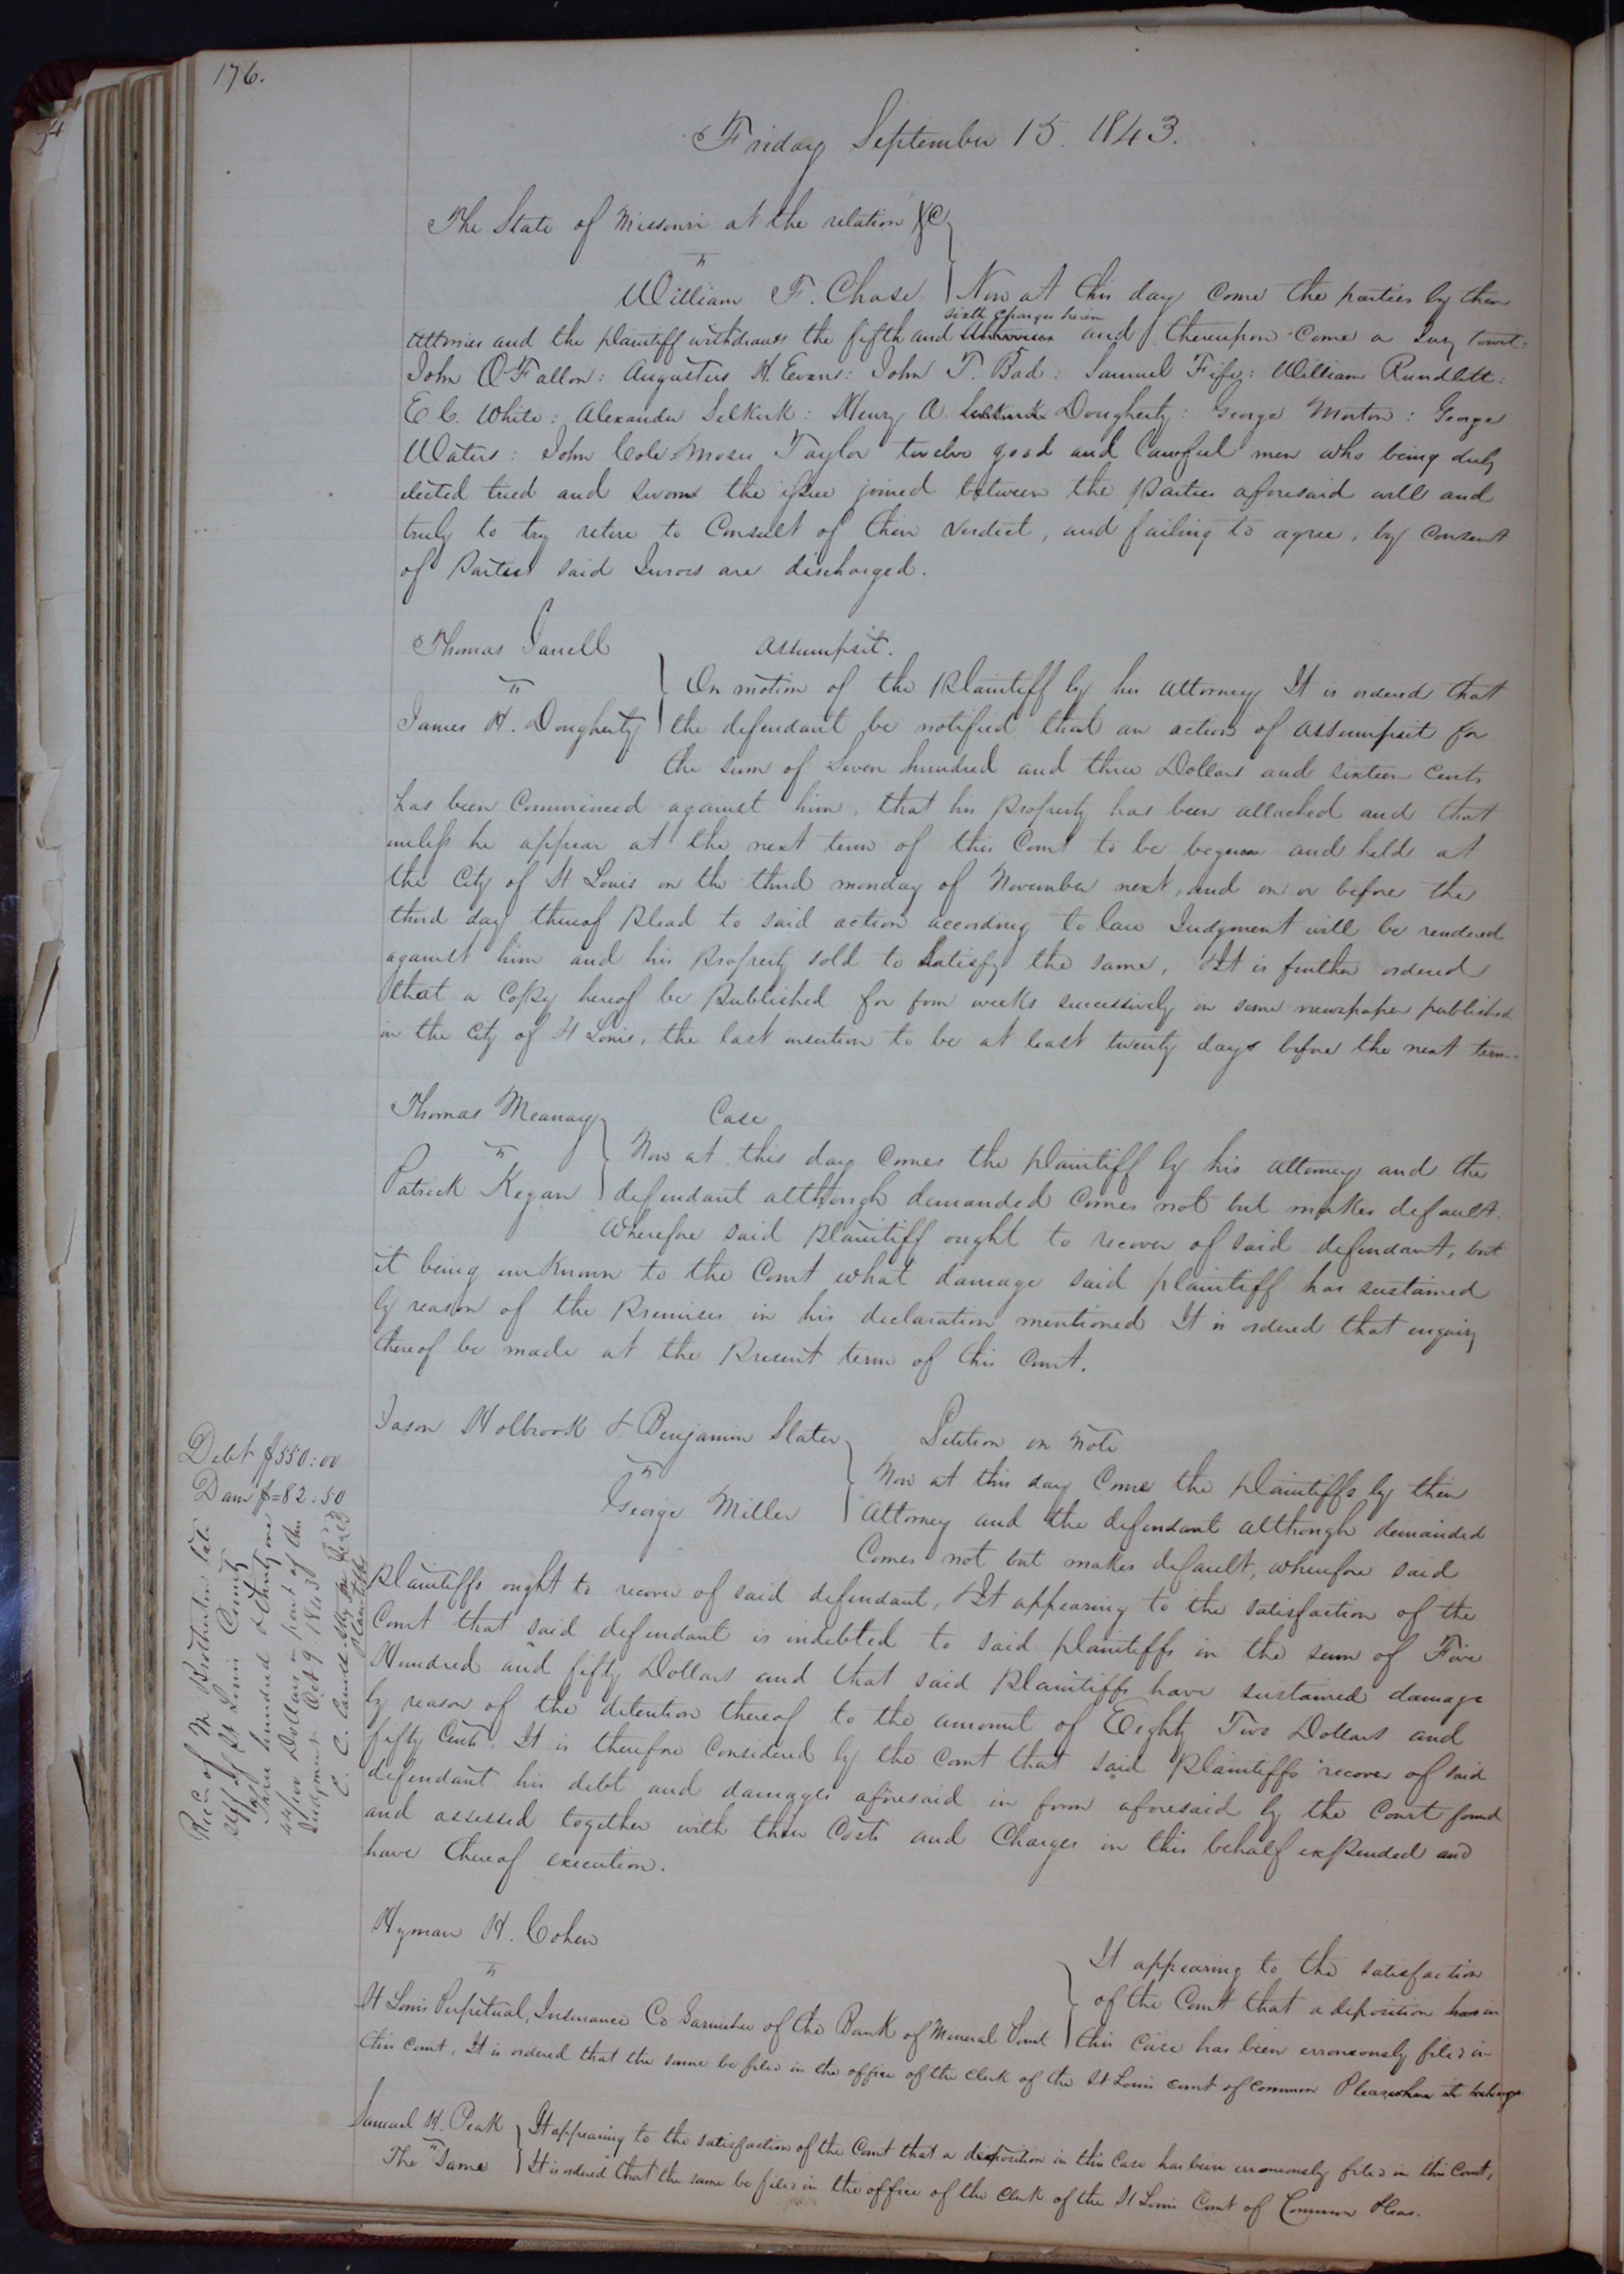 176.
Friday September 15. 1843.
The State of Missouri at the relation &c
vs
William F. Chase } Now at this day come the parties by their
sixth charges herein
attornies and the plaintiff withdraws the fifth and and thereupon come a Jury towit:
John O'Fallon: Augustus H. Evans: John T. Bad: Samuel Fify: William Rundlett:
E C. White: Alexander Selkirk: Henry A. Selkirk Dougherty: George Morton: George
Waters: John Cole Moses Taylor twelve good and lawful men who being duly
elected tried and sworn the issue joined between the parties aforesaid well and
truly to try retire to Consult of their verdict, and failing to agree, by consent
of Parties said Jurors are discharged.
Thomas Jarrell
Assumpsit.
vs
On motion of the Plaintiff by his attorney It is ordered that
James H. Dougherty } the defendant be notified that an action of assumpsit for
the sum of Seven hundred and three Dollars and sixteen Cents
has been Commenced against him, that his Property has been attached and that
unless he appear at the next term of this Court to be begun and held at
the City of St Louis on the third monday of November next, and on or before the
third day thereof Plead to said action according to law Judgment will be rendered
against him and his Property sold to Satisfy the same, It is further ordered
that a Copy hereof be Published for four weeks successively in some newspaper published
in the City of St Louis, the last insertion to be at least twenty days before the next term.
Thomas Meanay
Case
vs
Now at this day Comes the plaintiff by his attorney and the
Patrick Kegan } defendant although demanded Comes not but makes default.
Wherefore said Plaintiff ought to recover of said defendant, but
it being unknown to the Court what damage said plaintiff has sustained
by reason of the Premises in his declaration mentioned It is ordered that enquiry
thereof be made at the Present term of this Court.
Jason Holbrook & Benjamin Slater
Petition on Note
vs
Now at this day Come the plaintiffs by their
George Miller } Attorney and the defendant although demanded
Comes not but makes default, wherefore said
Plaintiffs ought to recover of said defendant, & It appearing to the satisfaction of the
Court that said defendant is indebted to said plaintiffs in the sum of Five
Hundred and fifty Dollars and that said Plaintiffs have sustained damage
by reason of the detention thereof to the amount of Eighty Two Dollars and
fifty Cents. It is therefore Considered by the Court that said Plaintiffs recover of said
defendant his debt and damages aforesaid in form aforesaid by the Court found
and assessed together with their Costs and Charges in this behalf expended and
have thereof execution.
Debt $550:00
Dam $=82.50
Recd of M Brotherton late
Shff of St Louis County
three hundred & thirty one
44/100 Dollars in part of this
Judgment Oct 9 1843
C. C. Atty for
plaintiffs
Hyman H. Cohen
vs
It appearing to the satisfaction
of the Court that a deposition has in
St Louis Perpetual, Insurance Co Garnishee of the Bank of Mineral Point } this case has been erroneously filed in
this court, It is ordered that the same be filed in the office of the Clerk of the St Louis court of common Pleas where it belongs
Samuel H. Peak } It appearing to the satisfaction of the Court that a deposition in this Case has been erroneously filed in this Court,
vs
The Same } It is ordered that the same be filed in the office of the Clerk of the St Louis Court of Common Pleas.